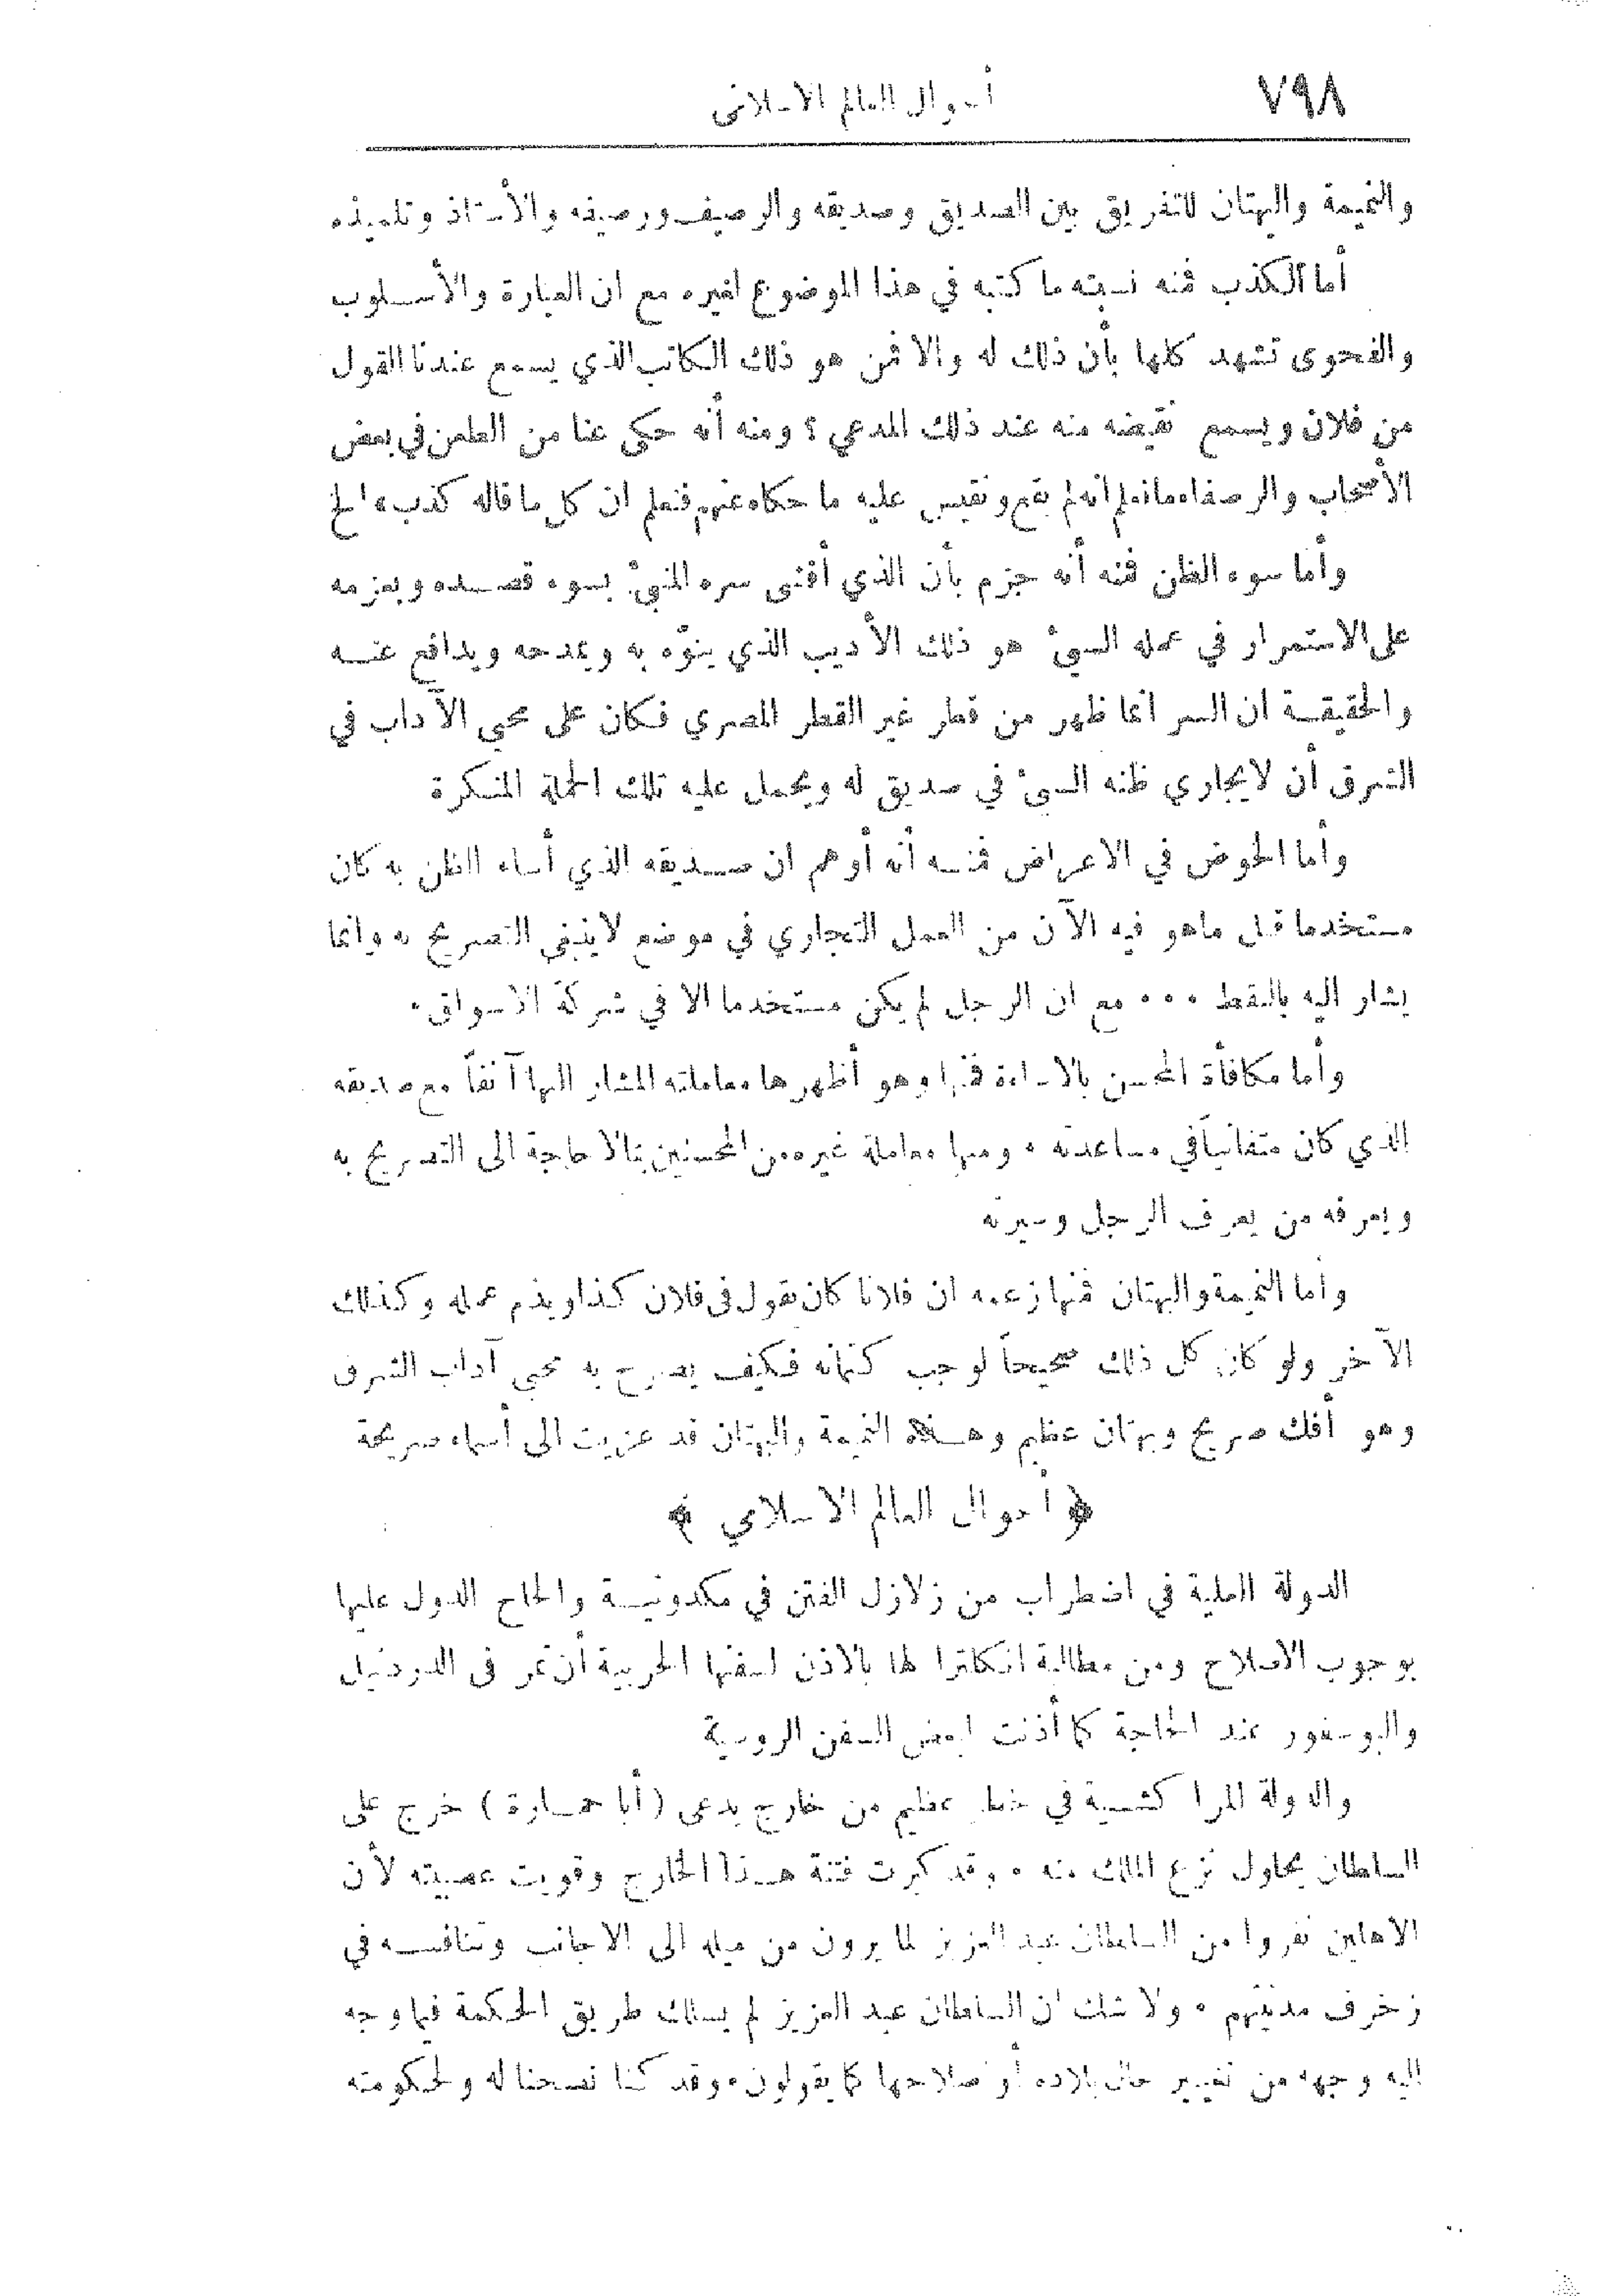 ٧٩٨
أحوال العالم الاسلامي
والنميمة والبهتان للتفريق بين الصديق وصديقه والرصيف ورصيفه والأستاذ وتلميذه
أما الكذب فمنه نسبته ما كتبه في هذا الموضوع لغيره مع ان العبارة والأسلوب
والفحوى تشهد كلها بأن ذلك له والا فمن هو ذلك الكاتب الذي يسمع عندنا القول
من فلان ويسمع نقيضه منه عند ذلك المدعي ؟ ومنه أنه حكى عنا من الطعن في بعض
الأصحاب والرصفاء ما نعلم أنه لم يقع ونقيس عليه ما حكاه عنهم فنعلم ان كل ما قاله كذب الخ
وأما سوء الظن فمنه أنه جزم بأن الذي أفشى سره المنبئ بسوء قصده وبعزمه
على الاستمرار في عمله السيئ هو ذلك الأديب الذي ينوّه به ويمدحه ويدافع عنه
والحقيقة ان السر انما ظهر من قطر غير القطر المصري فكان على محيي الآداب في
الشرق أن لا يجاري ظنه السيئ في صديق له ويحمل عليه تلك الحملة المنكرة
وأما الخوض في الاعراض فمنه أنه أوهم ان صديقه الذي أساء الظن به كان
مستخدما قبل ماهو فيه الآن من العمل التجاري في موضع لا ينبغي التصريح به وانما
يشار اليه بالنقط ٠٠٠ مع ان الرجل لم يكن مستخدما الا في شركة الاسواق ٠
وأما مكافأة المحسن بالاساءة فمنها وهو أظهرها معاملته المشار اليها آنفاً مع صديقه
الذي كان متفانيا في مساعدته ٠ ومنها معاملة غيره من المحسنين بما لا حاجة الى التصريح به
ويعرفه من يعرف الرجل وسيرته
وأما النميمة والبهتان فمنها زعمه ان فلانا كان يقول في فلان كذا ويذم عمله وكذلك
الآخر ولو كان كل ذلك صحيحاً لوجب كتمانه فكيف يصرح به محيي آداب الشرق
وهو أفك صريح وبهتان عظيم وهذه النميمة والبهتان قد عزيت الى أسماء صريحة
﴿ أحوال العالم الاسلامي ﴾
الدولة العلية في اضطراب من زلازل الفتن في مكدونية والحاح الدول عليها
بوجوب الاصلاح ومن مطالبة انكلترا لها بالاذن لسفنها الحربية أن تمر في الدردنيل
والبوسفور عند الحاجة كما أذنت لبعض السفن الروسية
والدولة المراكشية في خطر عظيم من خارج يدعى (أبا حمارة) خرج على
السلطان يحاول نزع الملك منه ٠ وقد كبرت فتنة هذا الخارج وقويت عصبيته لأن
الاهلين نفروا من السلطان عبد العزيز لما يرون من ميله الى الاجانب وتنافسه في
زخرف مدنيتهم ٠ ولا شك ان السلطان عبد العزيز لم يسلك طريق الحكمة فيما وجه
اليه وجهه من تغيير حال بلاده أو صلاحها كما يقولون ٠ وقد كنا نصحنا له ولحكومته